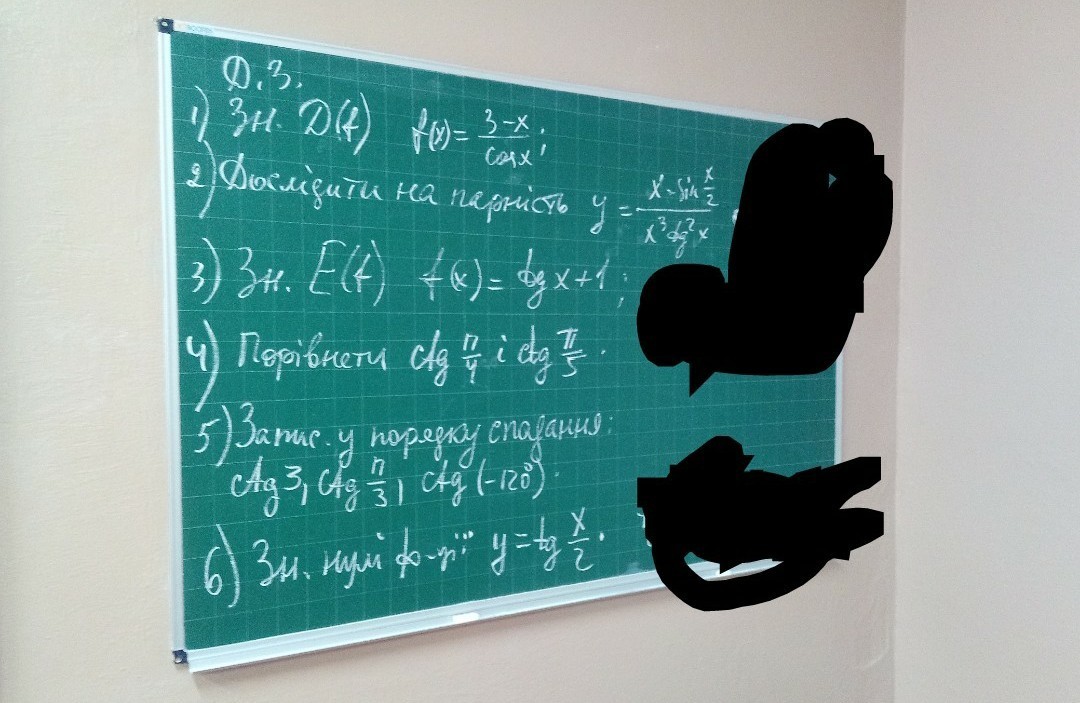 Д.З.
1) Зн. D(f) f(x) = (3-x)/(cos x);
2) Дослідити на парність y = (x - sin x/2)/(x³ ctg² x)
3) Зн. E(f) f(x) = tg x + 1;
4) Порівняти ctg π/4 і ctg π/5.
5) Запис. у порядку спадання:
ctg 3, ctg π/3, ctg (-120°).
6) Зн. нулі ф-ції y = tg x/2.